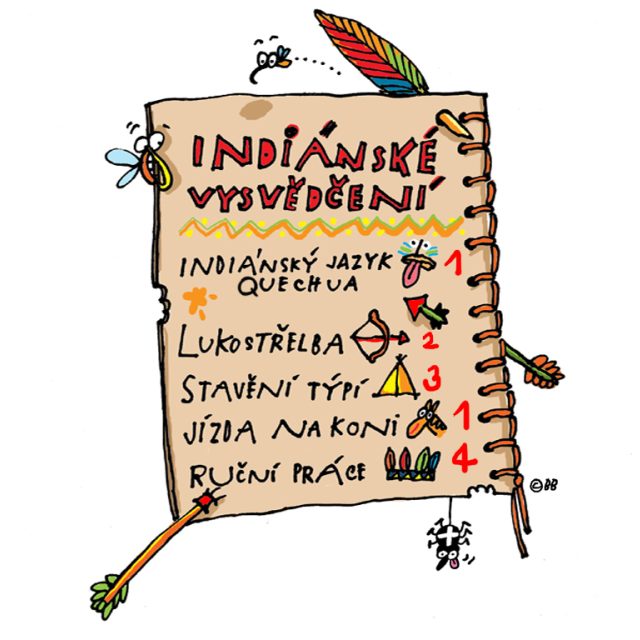 INDIÁNSKÉ
VYSVĚDČENÍ
INDIÁNSKÝ JAZYK 1
QUECHUA
LUKOSTŘELBA 2
STAVĚNÍ TÝPÍ 3
JÍZDA NA KONI 1
RUČNÍ PRÁCE 4
©BB